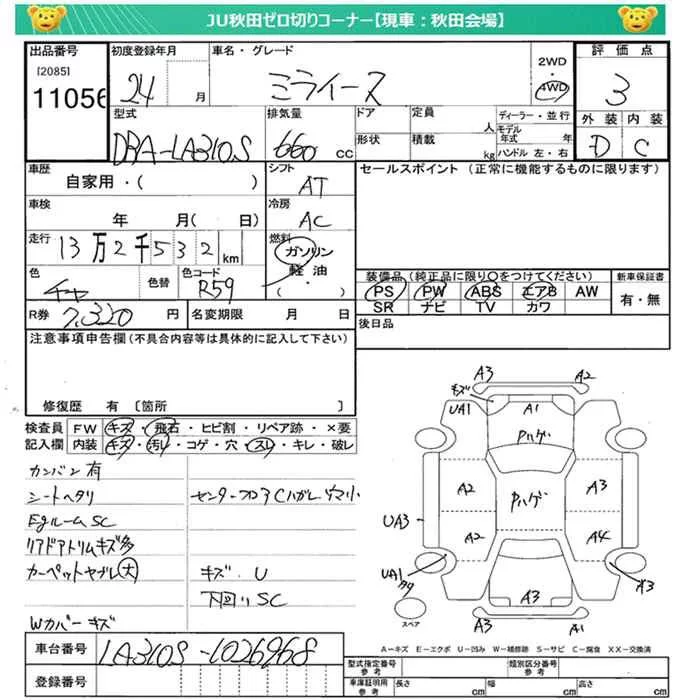 JU秋田ゼロ切りコーナー【現車：秋田会場】
出品番号
[2085]
11056
初度登録年月
24 月
車名・グレード
ミライース
2WD
4WD
評価点
3
外装 内装
D C
型式
DBA-LA310S
排気量
660 cc
ドア
形状
定員 人
積載 kg
ディーラー・並行
モデル年式 年
ハンドル 左・右
車歴
自家用・( )
シフト
AT
セールスポイント (正常に機能するものに限ります)
車検
年 月( 日)
冷房
AC
走行
13万2千532km
燃料
ガソリン
軽油
( ・ )
色
チャ
色替
色コード
R59
装備品 (純正品に限り○をつけてください)
PS PW ABS エアB AW
SR ナビ TV カワ
新車保証書
有・無
R券
7,320 円
名変期限 月 日
後日品
注意事項申告欄(不具合内容等は具体的に記入して下さい)
修復歴 有 〔箇所 〕
検査員記入欄
FW キズ・飛石・ヒビ割・リペア跡・×要
内装 キズ・汚レ・コゲ・穴・スレ・キレ・破レ
カンバン有
シートヘタリ
Egルーム SC
リアドアトリムキズ多
カーペットヤブレ大
Wカバーキズ
センターフロア
キズ・U
下回リSC
A3
A2
キズ
UA1
A1
Pハゲ
A2
Pハゲ
A3
UA3
A4
UA1
A3
A3
A3
A1
スペア
A-キズ E-エクボ U-凹み W-補修跡 S-サビ C-腐食 XX-交換済
車台番号
LA310S-1026968
登録番号
型式指定番号
参考
類別区分番号
参考
車庫証明用
参考
長さ cm 幅 cm 高さ cm